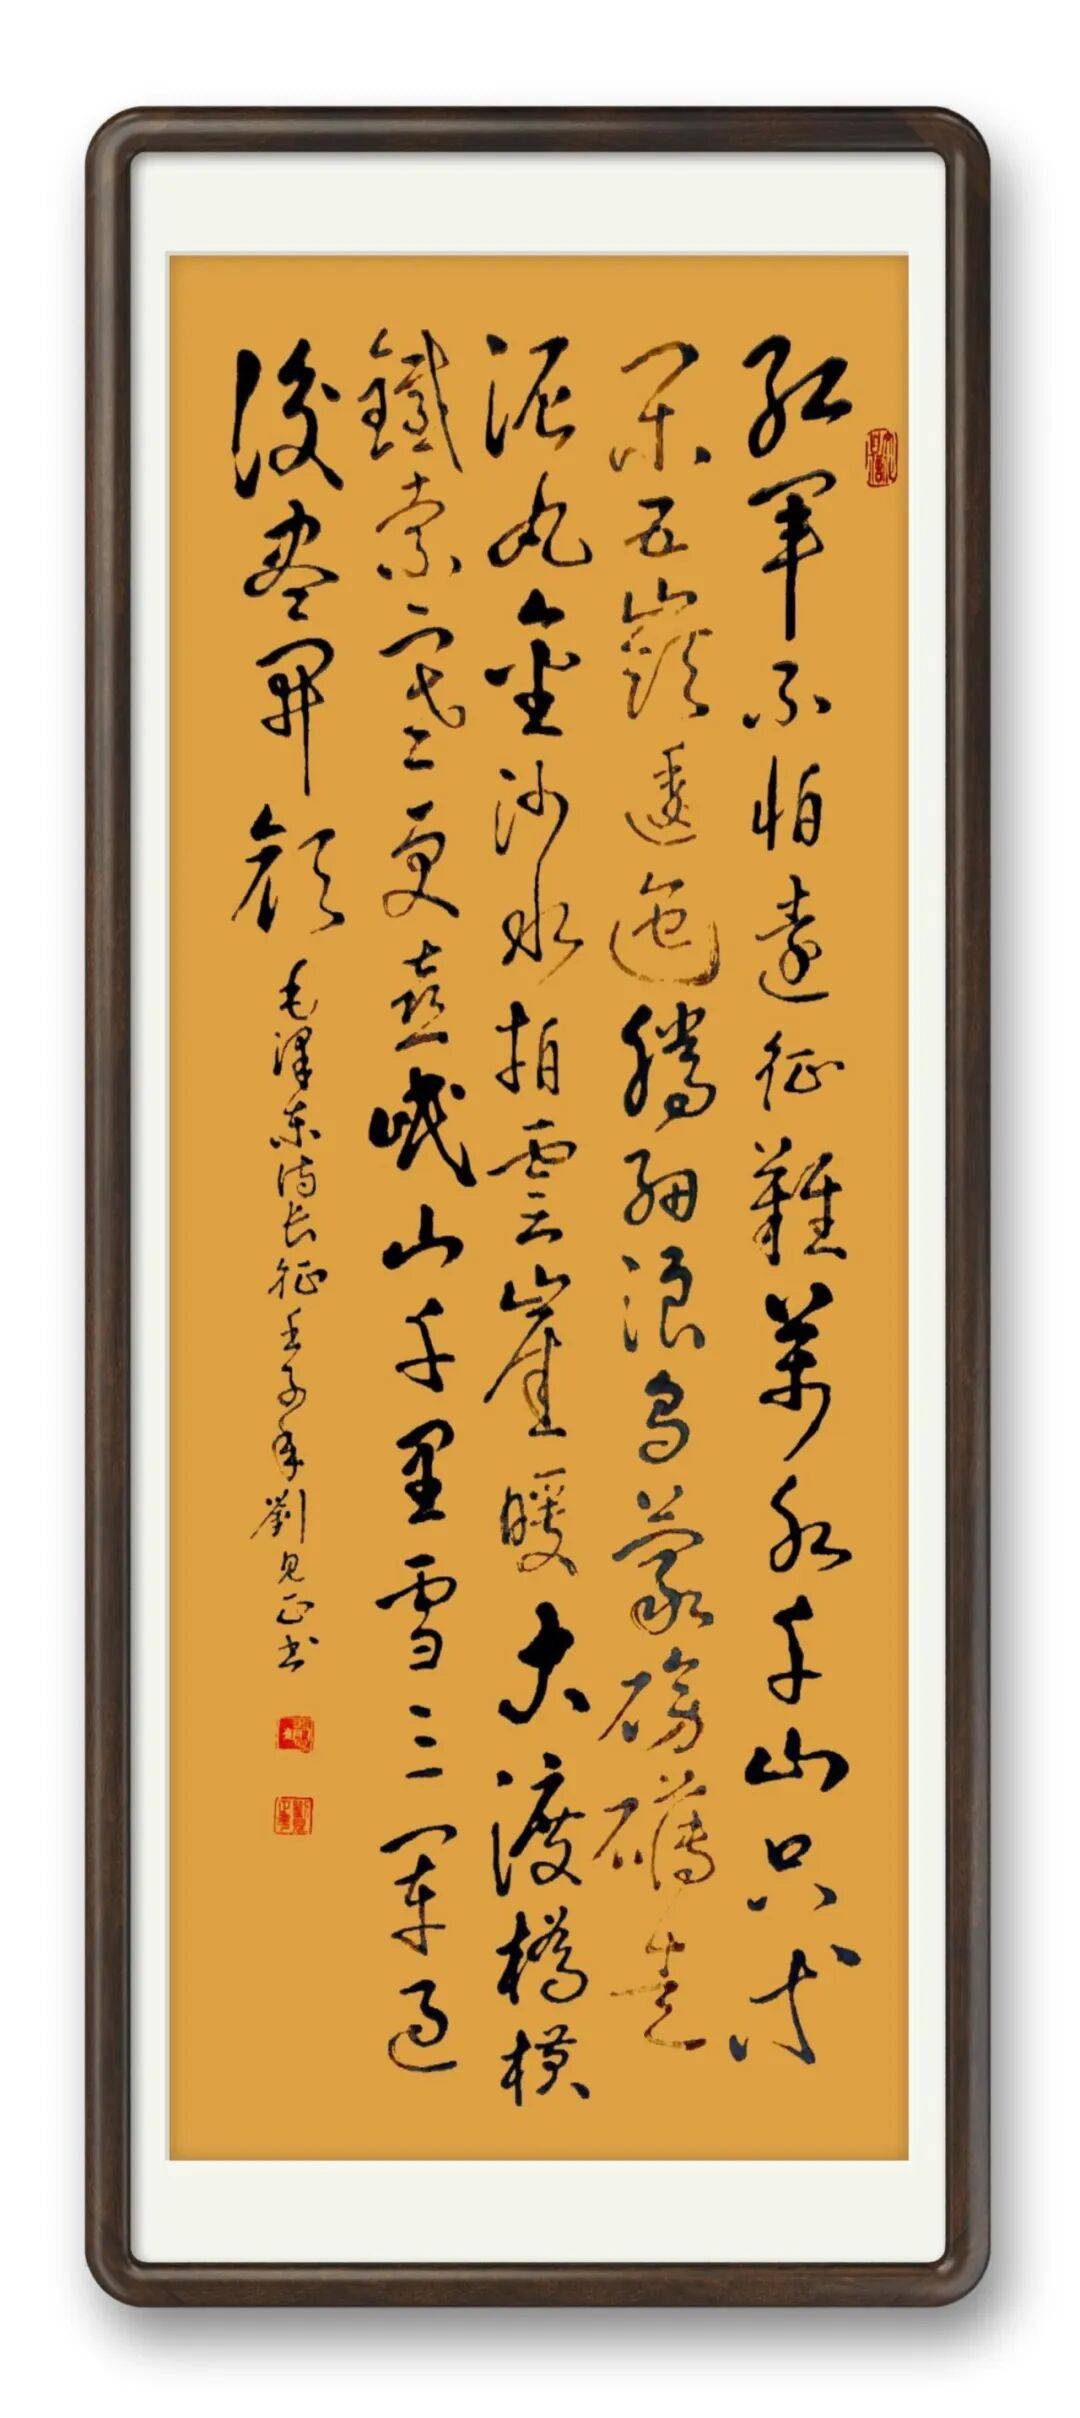 紅軍不怕遠征難萬水千山只等
閑五嶺逶迤騰細浪烏蒙磅礴走
泥丸金沙水拍雲崖暖大渡橋橫
鐵索寒更喜岷山千里雪三軍過
後盡開顏
毛澤東詩长征壬子年劉見正书